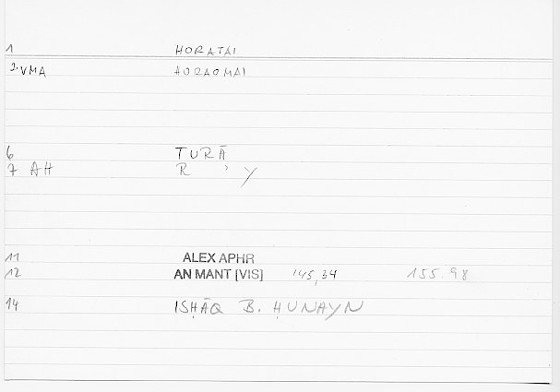 1 HORATAI
2. VMA HORAOMAI
6 TURĀ
7 AH R ʾ Y
11 ALEX APHR
12 AN MANT [VIS] 145,34 155.98
14 ISḤĀQ B. ḤUNAYN